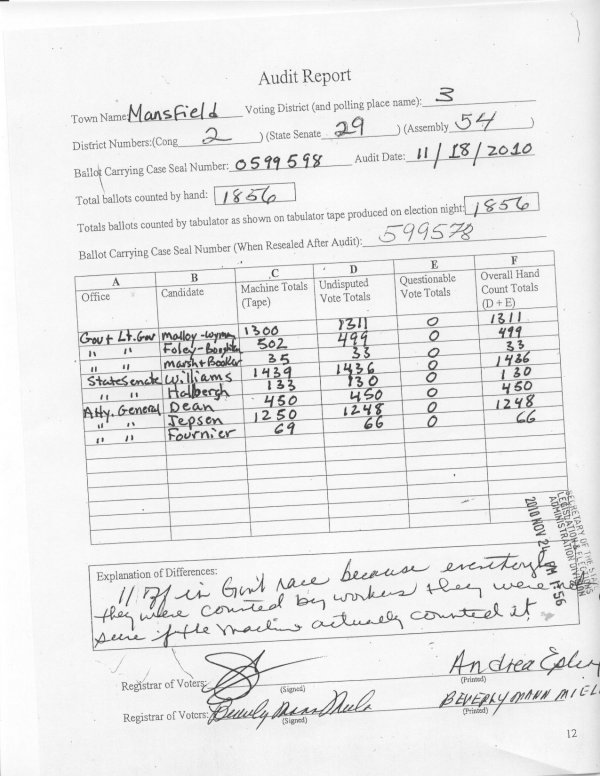 Audit Report
Town Name: Mansfield Voting District (and polling place name): 3
District Numbers:(Cong 2 ) (State Senate 29 ) (Assembly 54 )
Ballot Carrying Case Seal Number: 0599598 Audit Date: 11/18/2010
Total ballots counted by hand: 1856
Totals ballots counted by tabulator as shown on tabulator tape produced on election night: 1856
Ballot Carrying Case Seal Number (When Resealed After Audit): 599578
A B C D E F
Office Candidate Machine Totals (Tape) Undisputed Vote Totals Questionable Vote Totals Overall Hand Count Totals (D + E)
Gov + Lt. Gov Malloy-Wyman 1300 1311 0 1311
" " Foley-Boughton 502 499 0 499
" " Marsh + Booker 35 33 0 33
State Senate Williams 1439 1436 0 1436
" " Halbergh 133 130 0 130
Atty. General Dean 450 450 0 450
" " Jepsen 1250 1248 0 1248
" " Fournier 69 66 0 66
SECRETARY OF THE STATE
LEGISLATION & ELECTIONS
ADMINISTRATION DIVISION
2010 NOV 24 PM 1:56
Explanation of Differences:
11 in Gov't race because
they were counted by workers they were not
sure if the machine actually counted it.
Registrar of Voters: (Signed) Andrea Ep (Printed)
Registrar of Voters: Beverly Mann Miela (Signed) BEVERLY MANN MIEL (Printed)
12